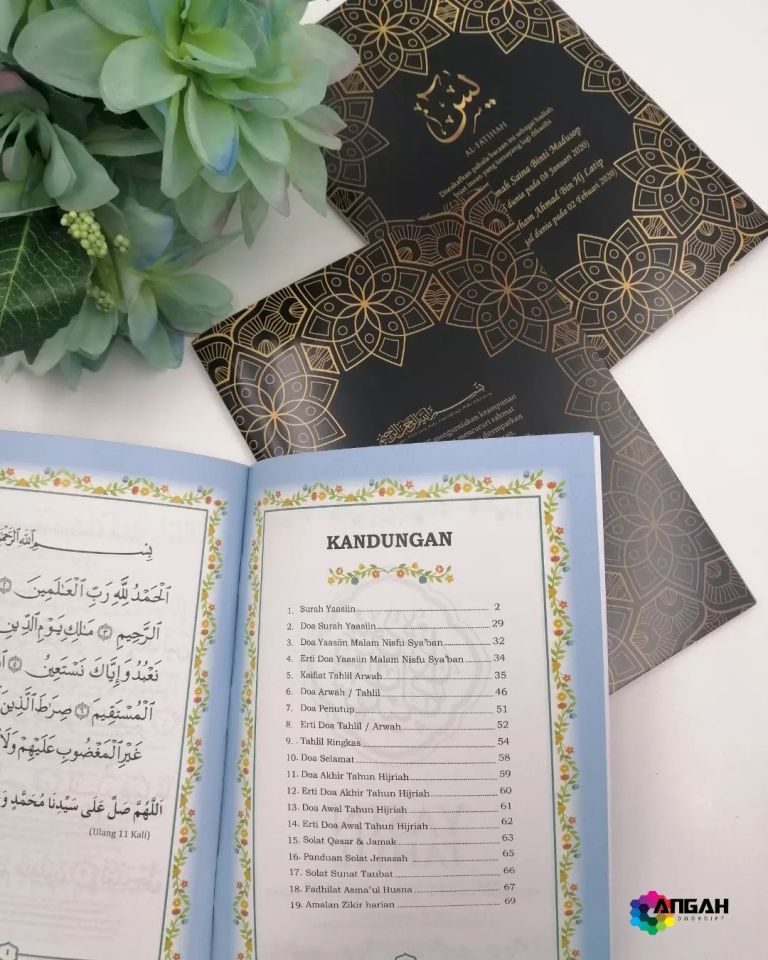 يس
AL-FATIHAH
Diwakafkan pahala bacaan ini sebagai hadiah
buat insan yang tersayang lagi dikasihi
Saina Binti Madusop
dunia pada 09 Januari 2020)
Ahmad Bin Hj Latip
dunia pada 02 Febuari 2020)
mengurniakan keampunan
mencucuri rahmat
ditempatkan
بِسْمِ اللَّهِ
اَلْحَمْدُ لِلَّهِ رَبِّ الْعَالَمِينَ
الرَّحِيمِ ٣ مَالِكِ يَوْمِ الدِّينِ
نَعْبُدُ وَإِيَّاكَ نَسْتَعِينُ ٥
الْمُسْتَقِيمَ ٦ صِرَاطَ الَّذِينَ
غَيْرِ الْمَغْضُوبِ عَلَيْهِمْ وَلَا
اَللَّهُمَّ صَلِّ عَلَى سَيِّدِنَا مُحَمَّدٍ
(Ulang 11 Kali)
KANDUNGAN
1. Surah Yaasiin 2
2. Doa Surah Yaasiin 29
3. Doa Yaasiin Malam Nisfu Sya'ban 32
4. Erti Doa Yaasiin Malam Nisfu Sya'ban 34
5. Kaifiat Tahlil Arwah 35
6. Doa Arwah / Tahlil 46
7. Doa Penutup 51
8. Erti Doa Tahlil / Arwah 52
9. Tahlil Ringkas 54
10. Doa Selamat 58
11. Doa Akhir Tahun Hijriah 59
12. Erti Doa Akhir Tahun Hijriah 60
13. Doa Awal Tahun Hijriah 61
14. Erti Doa Awal Tahun Hijriah 62
15. Solat Qasar & Jamak 63
16. Panduan Solat Jenazah 65
17. Solat Sunat Taubat 66
18. Fadhilat Asma'ul Husna 67
19. Amalan Zikir harian 69
ANGAH
DOORGIFT